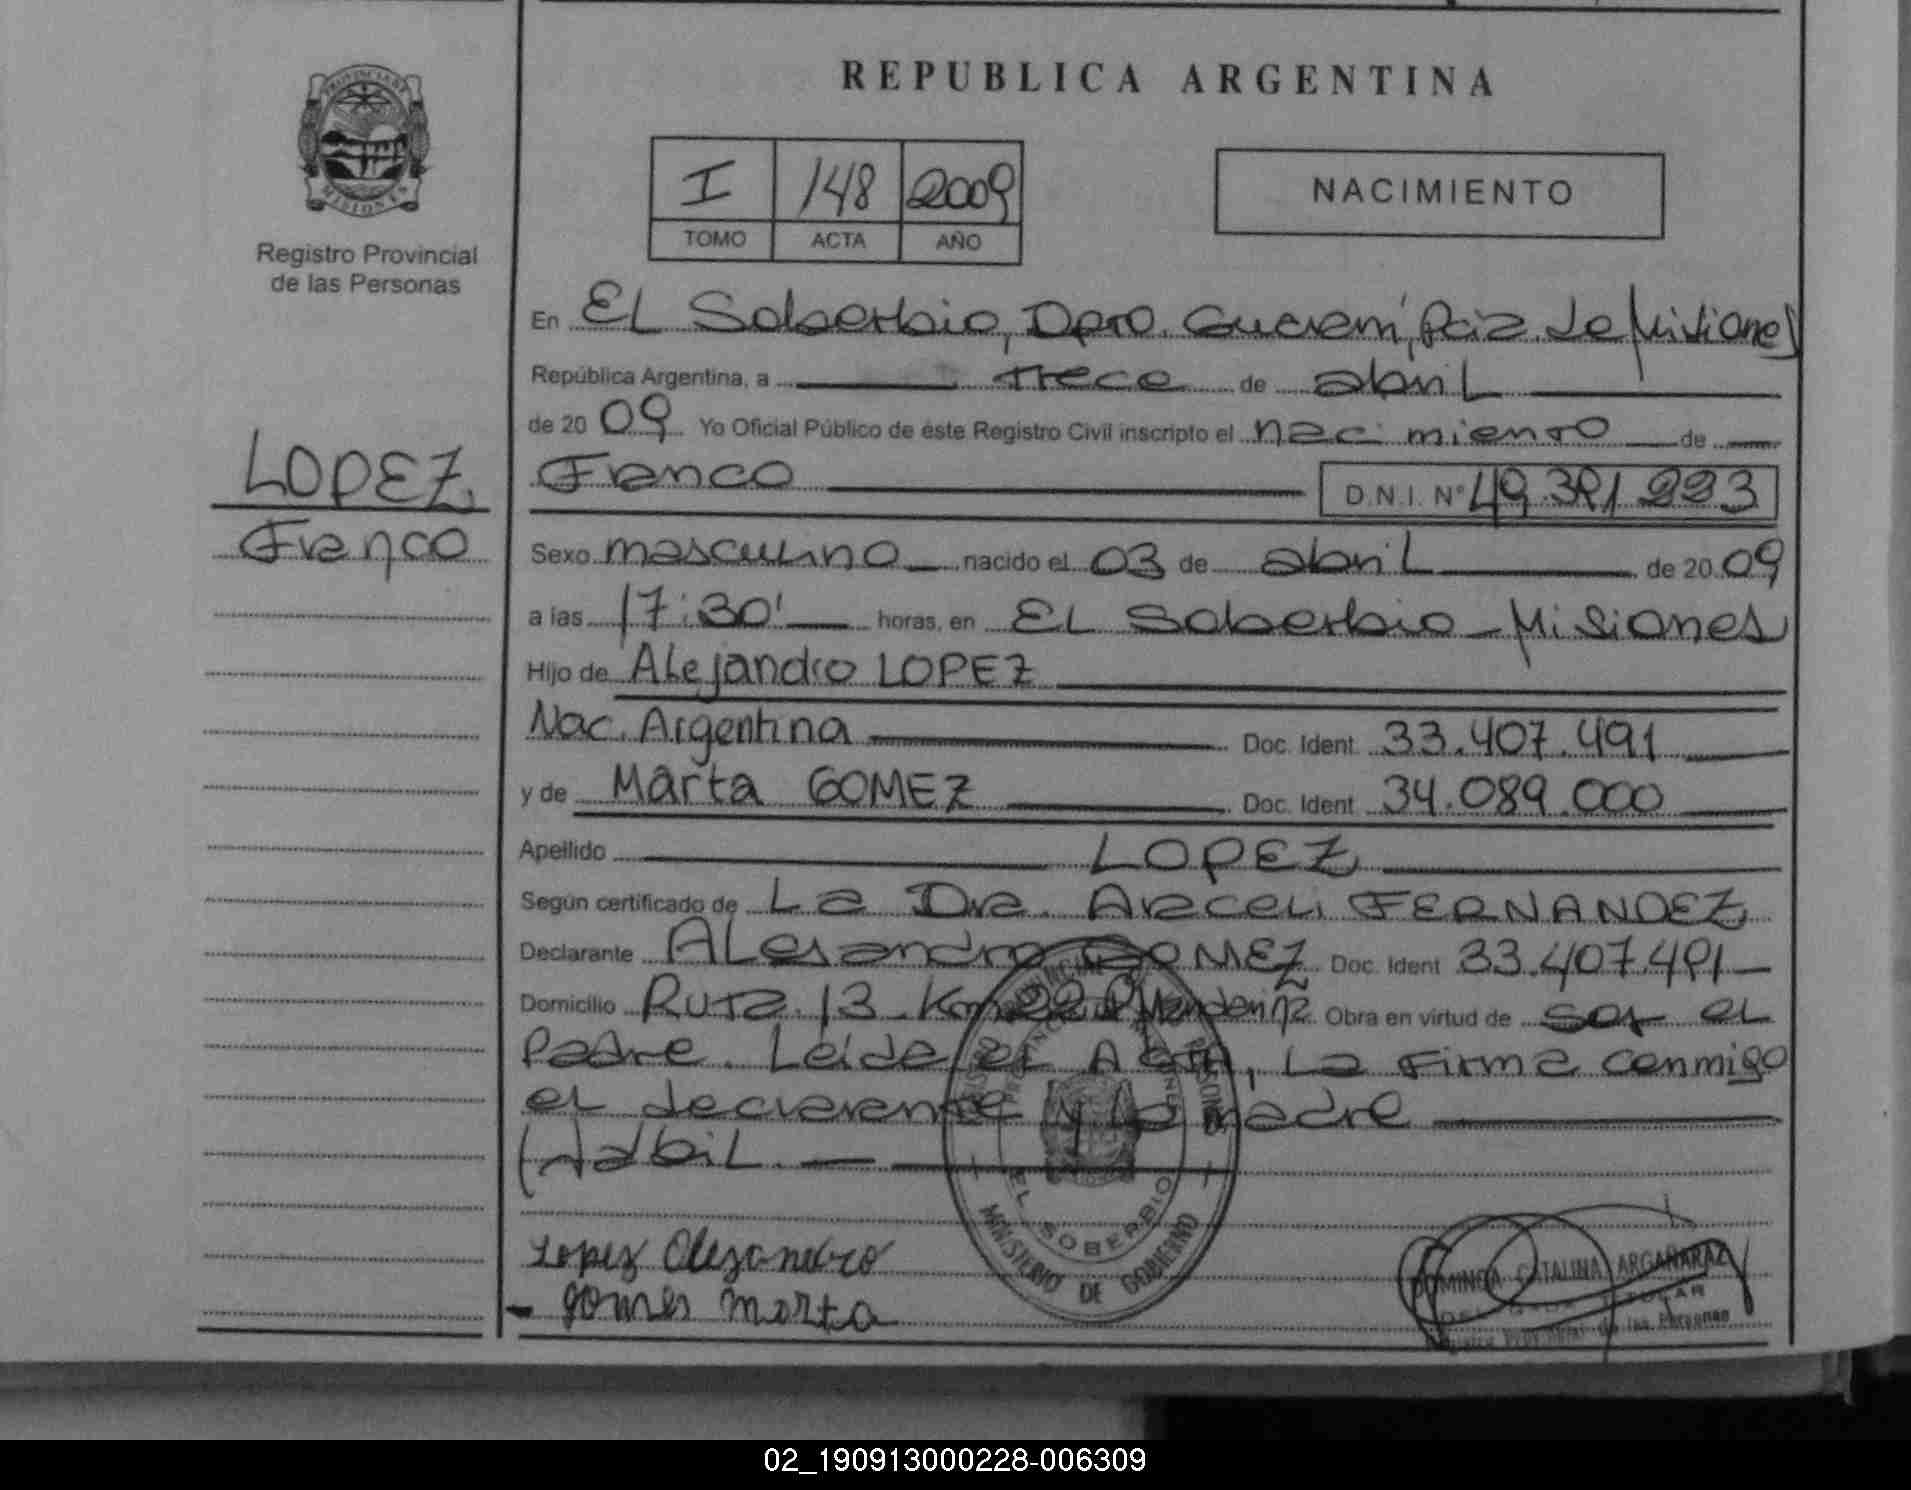 PROVINCIA DE
MISIONES
Registro Provincial
de las Personas
LOPEZ,
Franco
REPUBLICA ARGENTINA
I 148 2009
TOMO ACTA AÑO
NACIMIENTO
En EL Soberbio, Dpto. Guaraní, Pcia. de Misiones
República Argentina, a trece de abril
de 2009 Yo Oficial Público de éste Registro Civil inscripto el nacimiento de
Franco D.N.I. Nº 49.391.223
Sexo masculino nacido el 03 de abril de 2009
a las 17:30' horas, en EL Soberbio - Misiones
Hijo de Alejandro LOPEZ
Nac. Argentina Doc. Ident 33.407.491
y de Marta GOMEZ Doc. Ident 34.089.000
Apellido LOPEZ
Según certificado de La Dra. Araceli FERNANDEZ
Declarante ALejandro GOMEZ Doc. Ident 33.407.491
Domicilio Ruta 13 Km 22 Mandarina Obra en virtud de ser el
Padre. Leida el Acta, La Firma conmigo
el declarante y la madre
Habil.
EL SOBERBIO
MINISTERIO DE GOBIERNO
Lopez Alejandro
- gomes marta
DOMINGA CATALINA ARGAÑARAZ
de las Personas
02_190913000228-006309